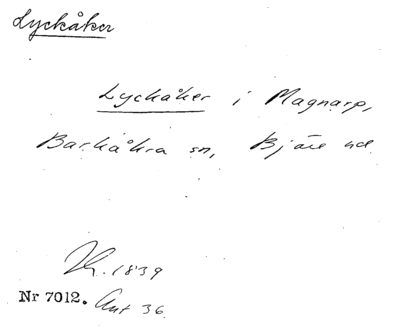 Lyckåker
Lyckåker i Magnarp,
Barkåkra sn, Bjäre hd.
1839
Nr 7012. Ant 36.